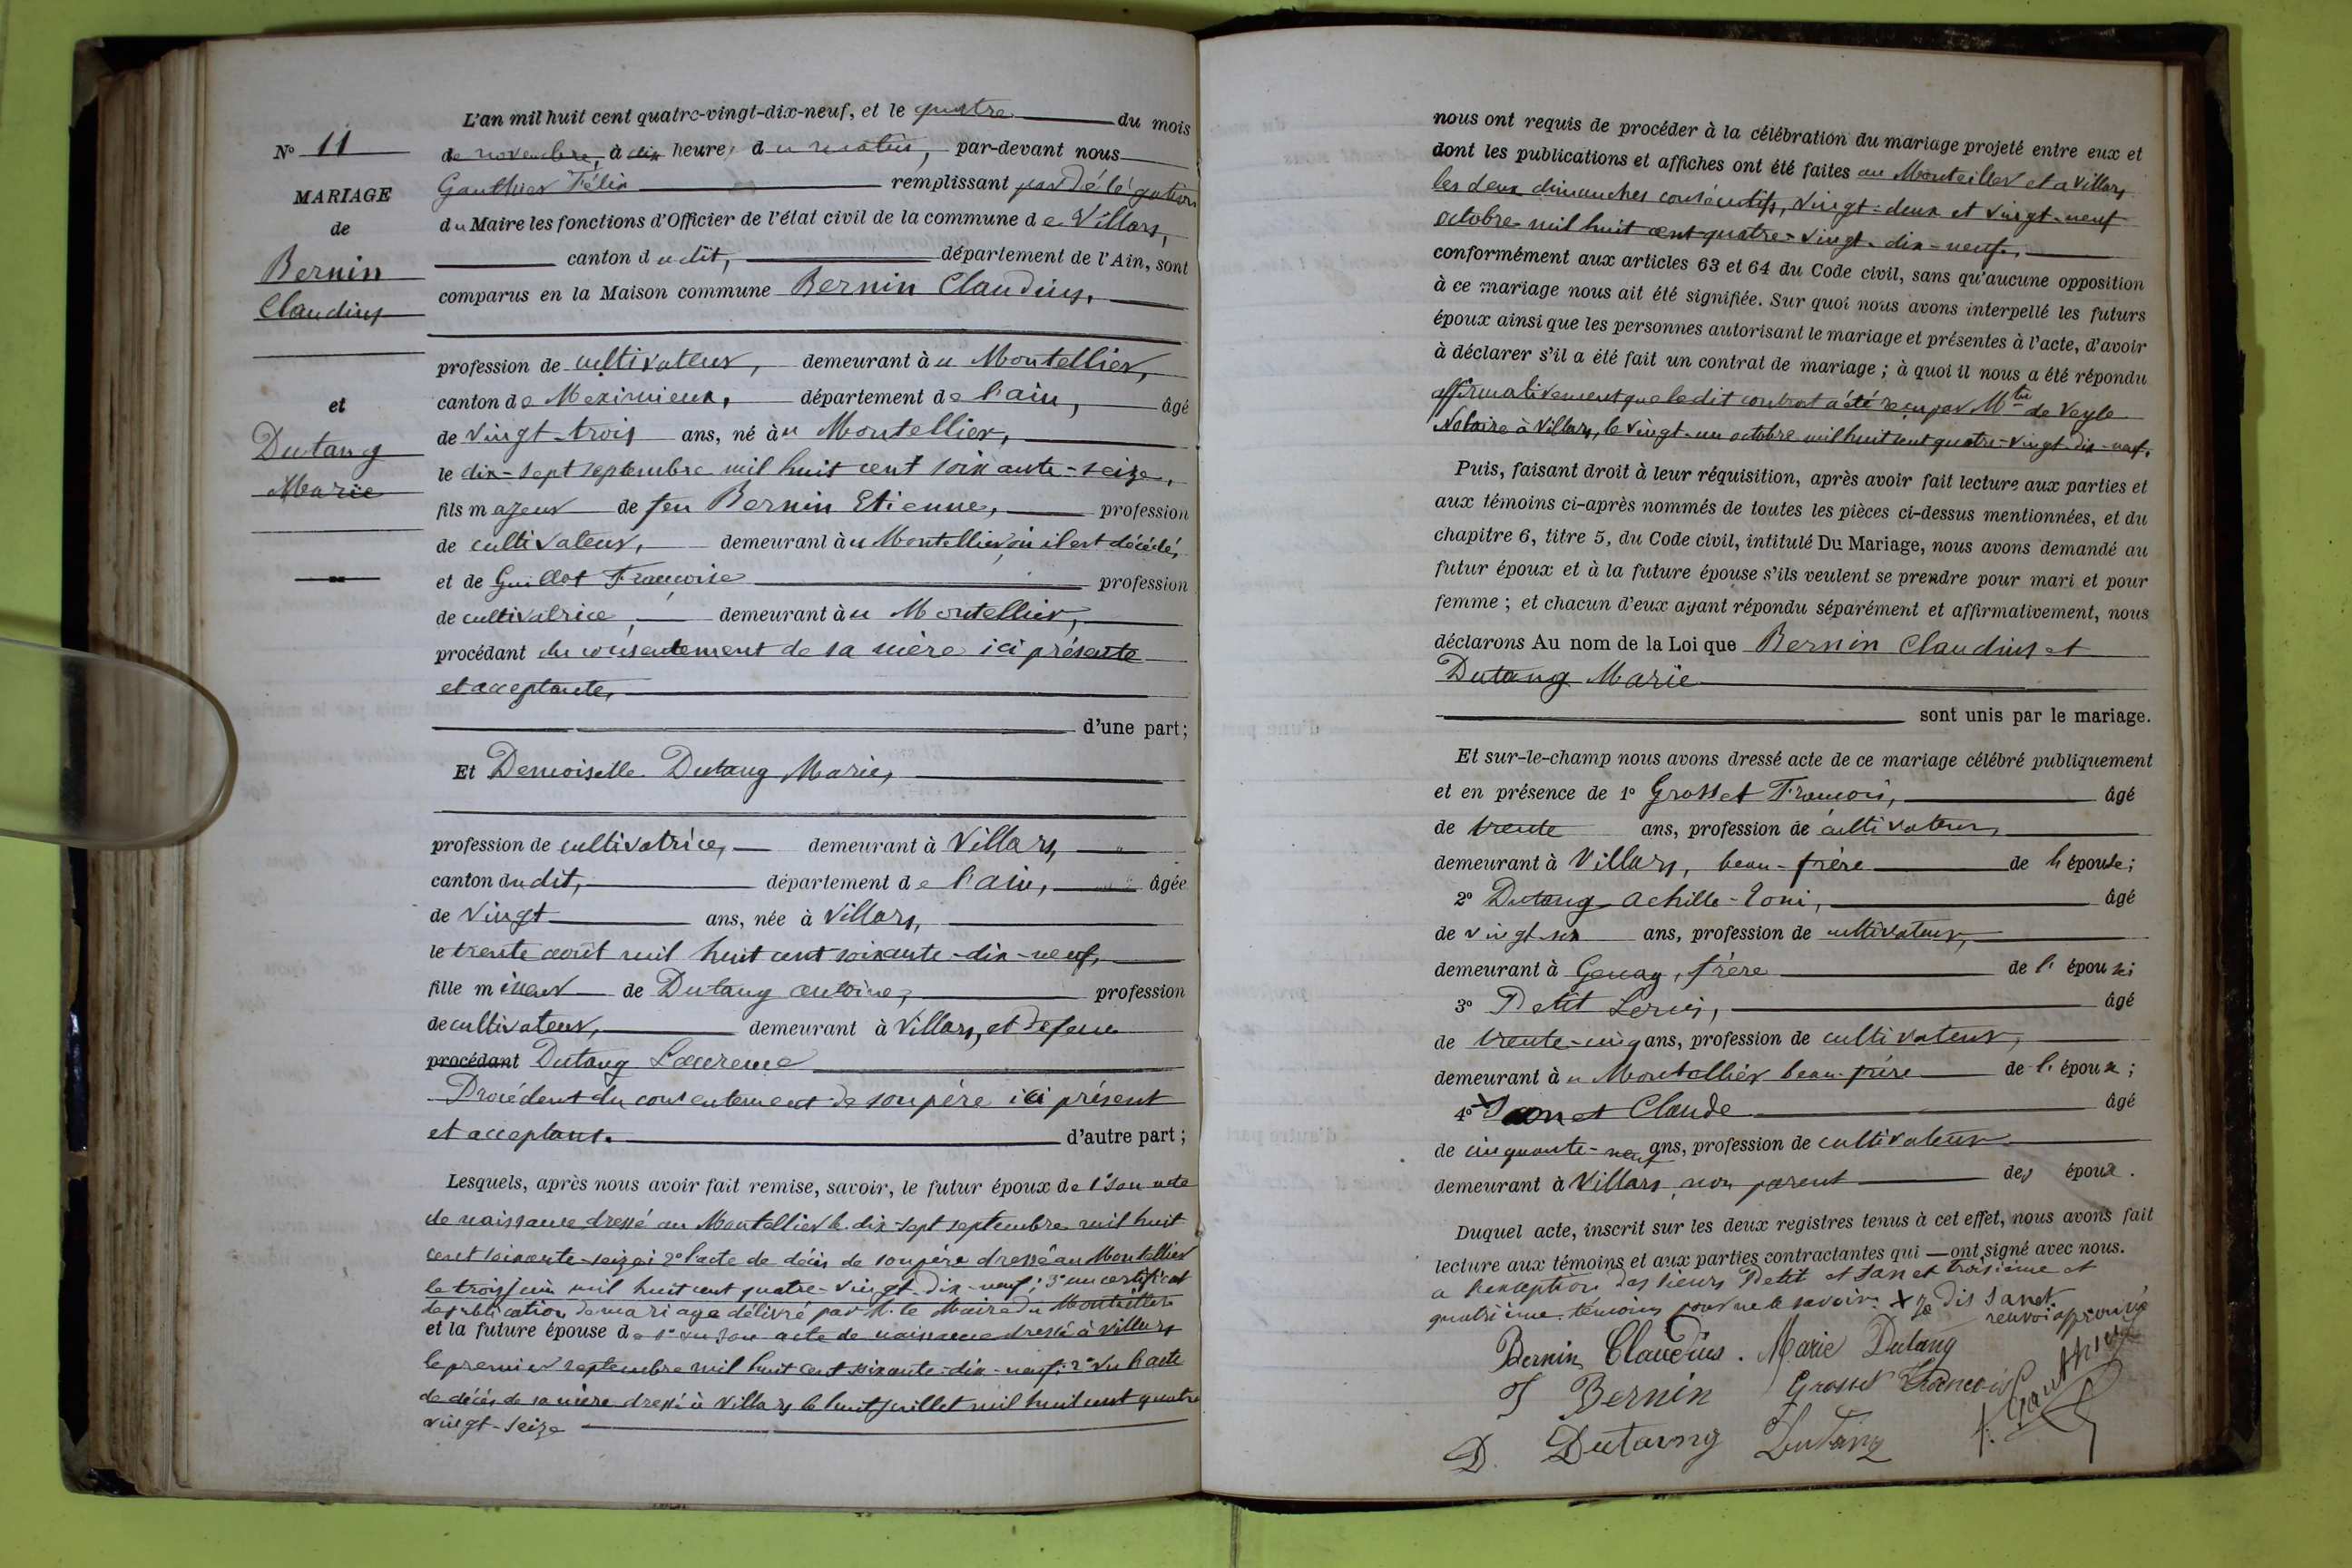 N° 11
MARIAGE
de
Bernin
Claudius
et
Dutang
Marie
L'an mil huit cent quatre-vingt-dix-neuf, et le quatre du mois
de novembre, à dix heures du matin, par-devant nous
Gauthier Félix remplissant par délégation
du Maire les fonctions d'Officier de l'état civil de la commune de Villars,
canton dudit, département de l'Ain, sont
comparus en la Maison commune Bernin Claudius,
profession de cultivateur, demeurant à u Montellier,
canton de Meximieux, département de l'ain, âgé
de vingt-trois ans, né àu Montellier,
le dix-sept septembre mil huit cent soixante-seize,
fils majeur de feu Bernin Etienne, profession
de cultivateur, demeurant àu Montellier où il est décédé,
et de Guillot Françoise profession
de cultivatrice, demeurant àu Montellier,
procédant du consentement de sa mère ici présente
et acceptante,
d'une part;
Et Demoiselle Dutang Marie,
profession de cultivatrice, demeurant à Villars,
canton dudit, département de l'ain, âgée
de vingt ans, née à Villars,
le trente août mil huit cent soixante-dix-neuf,
fille mineur de Dutang antoine, profession
de cultivateur, demeurant à Villars, et de feue
procédant Dutang Laurence
Procédant du consentement de son père ici présent
et acceptant. d'autre part;
Lesquels, après nous avoir fait remise, savoir, le futur époux de 1° son acte
de naissance dressé au Montellier le dix-sept septembre mil huit
cent soixante-seize; 2° l'acte de décès de son père dressé au Montellier
le trois juin mil huit cent quatre-vingt-dix-neuf; 3° un certificat
de publication de mariage délivré par M. le Maire du Montellier
et la future épouse de 1° son acte de naissance dressé à Villars
le premier septembre mil huit cent soixante-dix-neuf; 2° l'acte
de décès de sa mère dressé à Villars le huit juillet mil huit cent quatre
vingt-seize
nous ont requis de procéder à la célébration du mariage projeté entre eux et
dont les publications et affiches ont été faites au Montellier et a Villars
les deux dimanches consécutifs, vingt-deux et vingt-neuf
octobre mil huit cent quatre-vingt-dix-neuf,
conformément aux articles 63 et 64 du Code civil, sans qu'aucune opposition
à ce mariage nous ait été signifiée. Sur quoi nous avons interpellé les futurs
époux ainsi que les personnes autorisant le mariage et présentes à l'acte, d'avoir
à déclarer s'il a été fait un contrat de mariage; à quoi il nous a été répondu
affirmativement que ledit contrat a été reçu par Mtre de Veyle
Notaire à Villars, le vingt-un octobre mil huit cent quatre-vingt-dix-neuf.
Puis, faisant droit à leur réquisition, après avoir fait lecture aux parties et
aux témoins ci-après nommés de toutes les pièces ci-dessus mentionnées, et du
chapitre 6, titre 5, du Code civil, intitulé Du Mariage, nous avons demandé au
futur époux et à la future épouse s'ils veulent se prendre pour mari et pour
femme; et chacun d'eux ayant répondu séparément et affirmativement, nous
déclarons Au nom de la Loi que Bernin Claudius et
Dutang Marie
sont unis par le mariage.
Et sur-le-champ nous avons dressé acte de ce mariage célébré publiquement
et en présence de 1° Grosset François, âgé
de trente ans, profession de cultivateur,
demeurant à Villars, beau-frère de l'épouse;
2° Dutang achille-Toni, âgé
de vingt-six ans, profession de cultivateur,
demeurant à Genay, frère de l'épouse;
3° Petit Louis, âgé
de trente-cinq ans, profession de cultivateur,
demeurant àu Montellier beau-frère de l'époux;
4° Janet Claude âgé
de cinquante-neuf ans, profession de cultivateur
demeurant à Villars, non parent des époux.
Duquel acte, inscrit sur les deux registres tenus à cet effet, nous avons fait
lecture aux témoins et aux parties contractantes qui ont signé avec nous.
a l'exception des sieurs Petit et Janet troisième et
quatrième témoins pour ne le savoir. X Je dis Janet
renvoi approuvé
Bernin Claudius. Marie Dutang
Bernin Grosset François
D. Dutarng Dutang
f. Gauthier